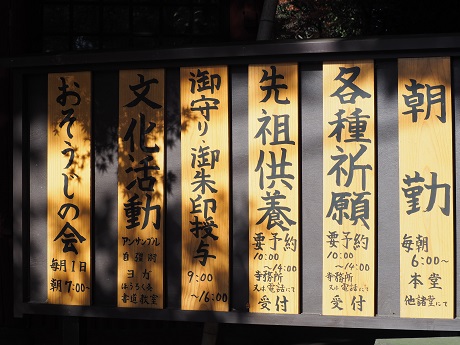 朝勤
毎朝
6:00~
本堂
他諸堂にて
各種祈願
要予約
10:00
~14:00
寺務所
又は電話にて
受付
先祖供養
要予約
10:00
~14:00
寺務所
又は電話にて
受付
御守り・御朱印授与
9:00
~16:00
文化活動
アンサンブル
自彊術
ヨガ
ほうろく灸
書道教室
おそうじの会
毎月1日
朝7:00~